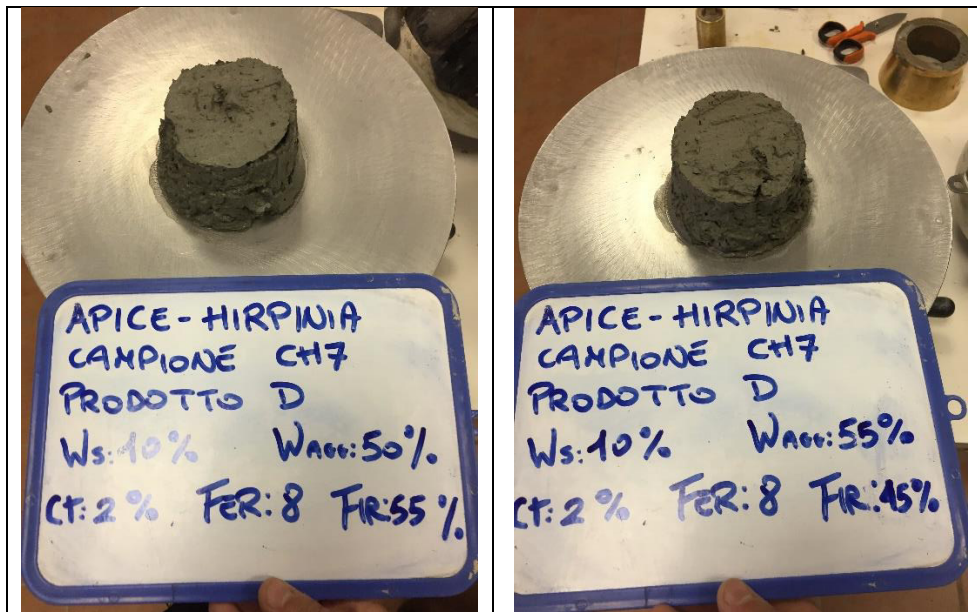 APICE-HIRPINIA
CAMPIONE CH7
PRODOTTO D
Ws:10% WAGG:50%
Cf:2% FER:8 FIR:55%
APICE-HIRPINIA
CAMPIONE CH7
PRODOTTO D
Ws:10% WAGG:55%
Cf:2% FER:8 FIR:45%